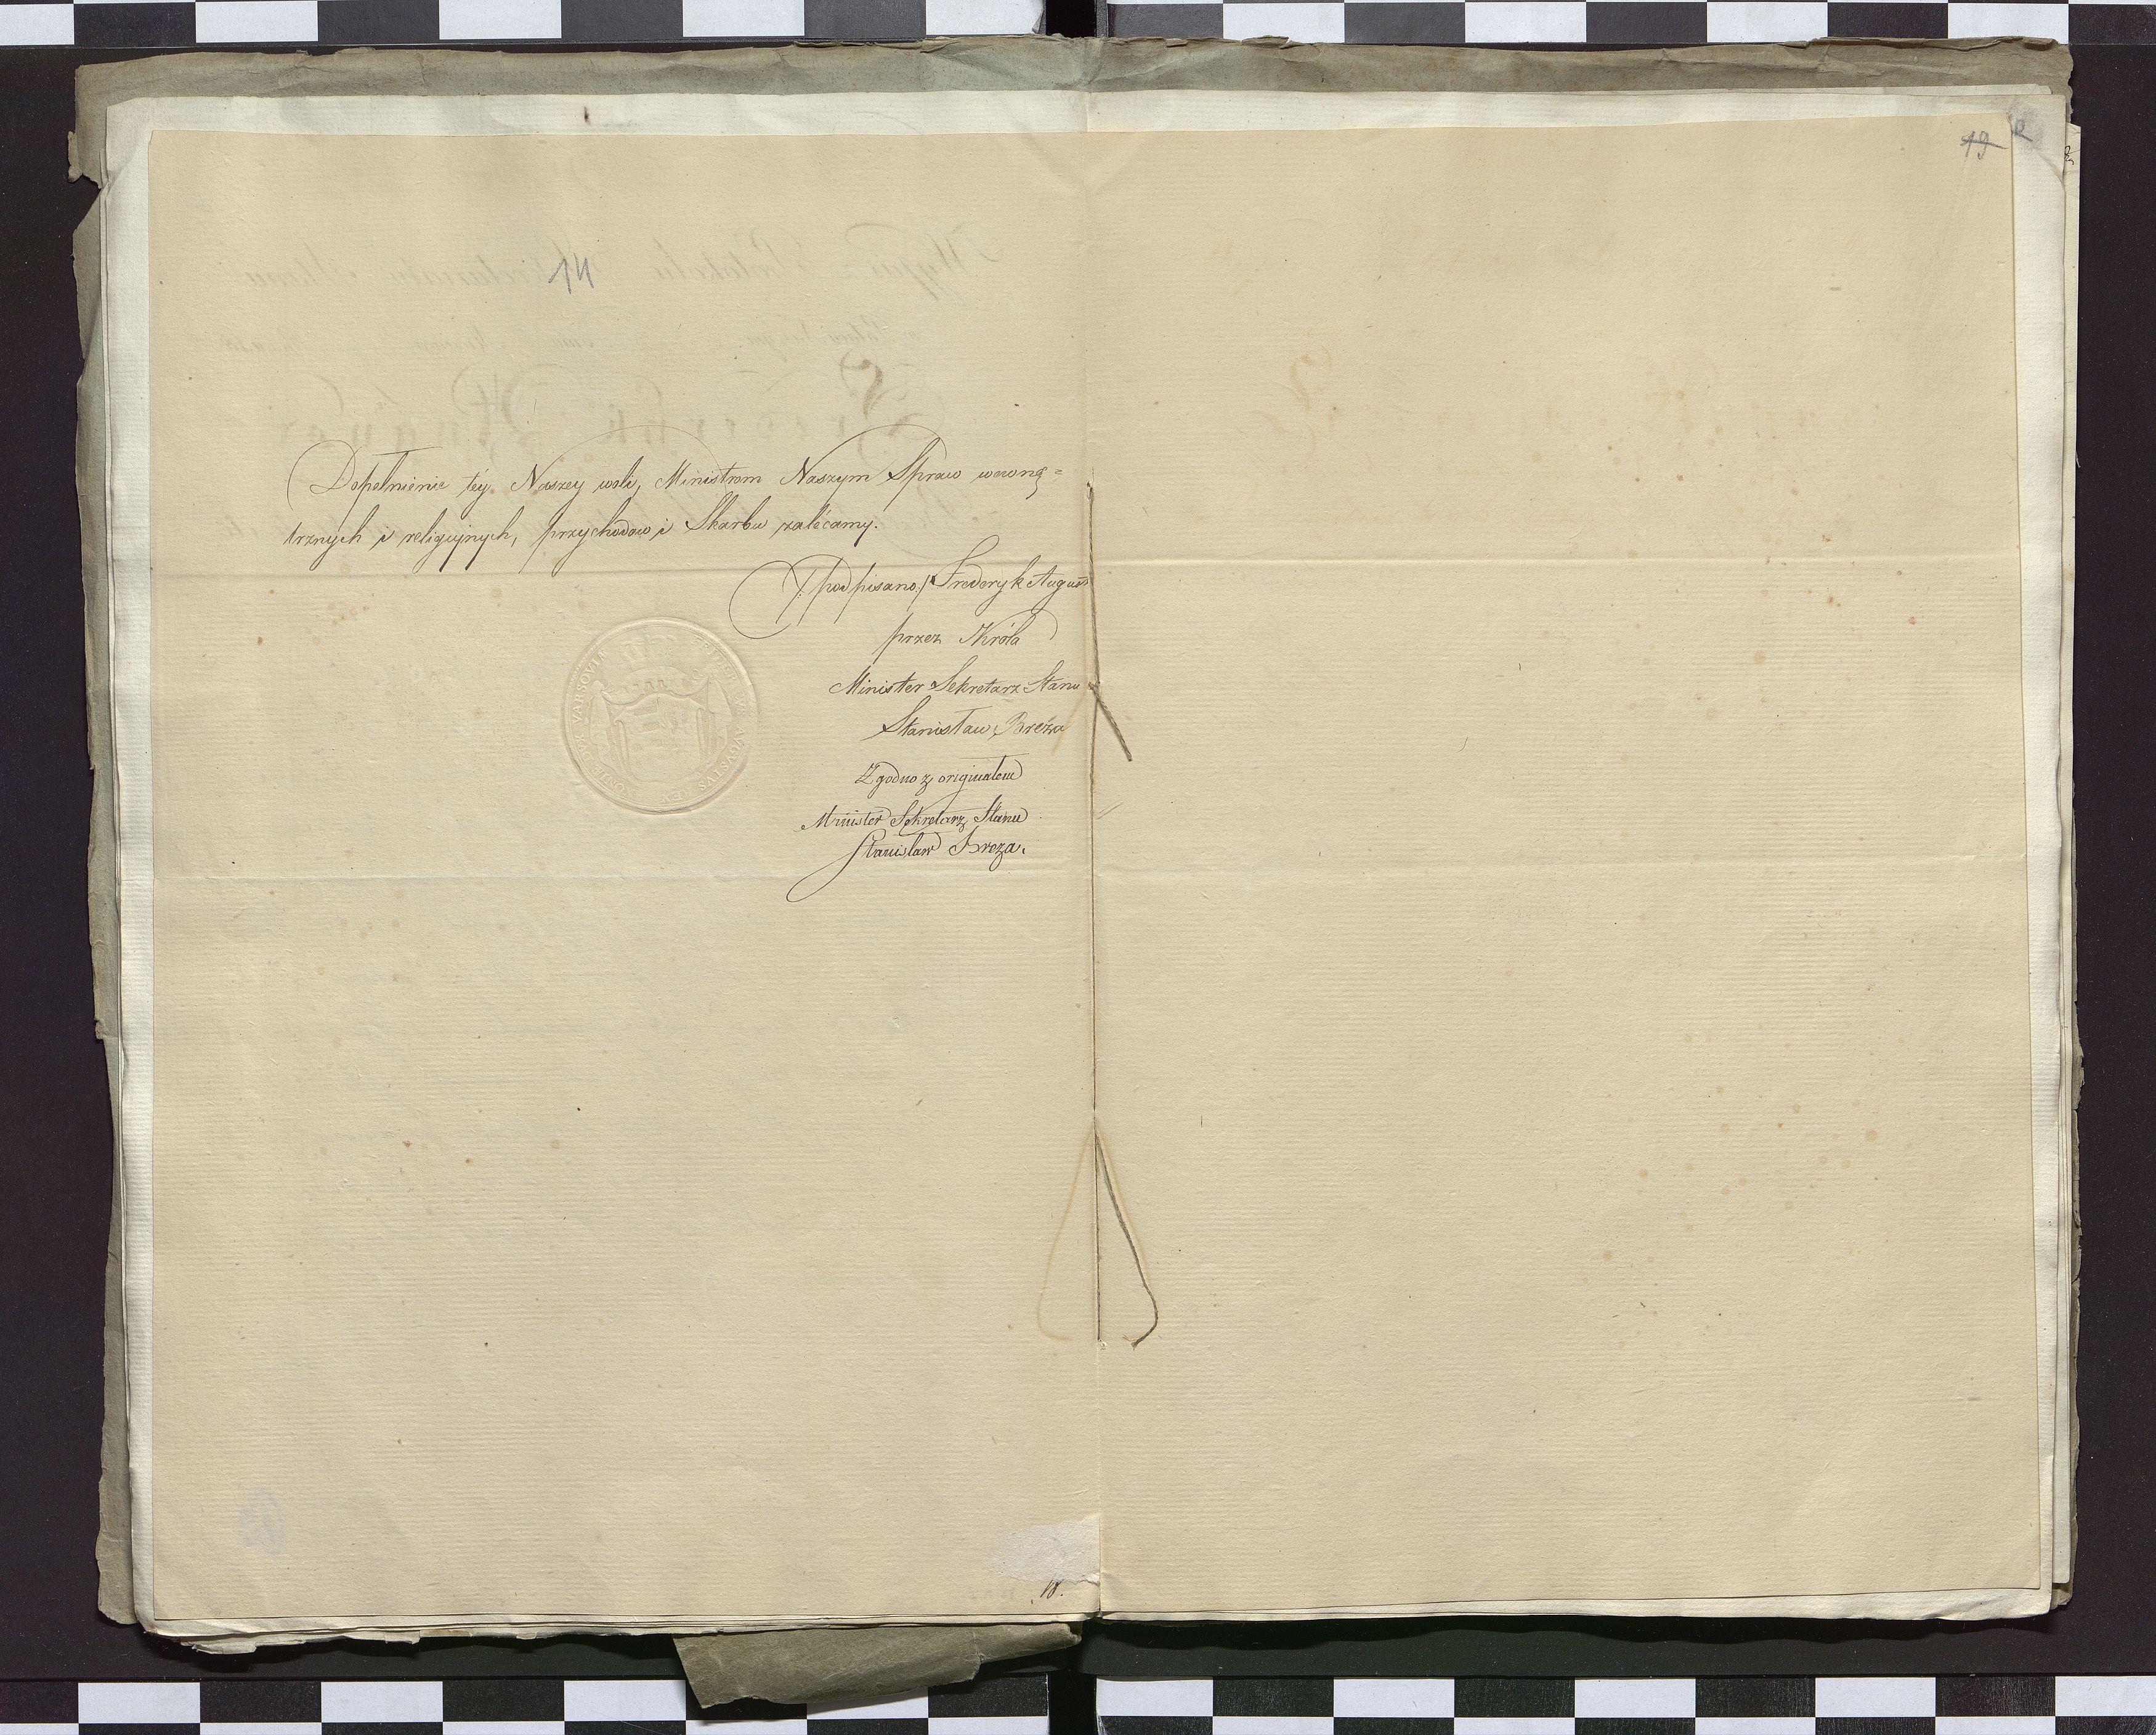 14
Dopełnienie tey Naszey woli, Ministrom Naszym Spraw wewnę=
trznych i religijnych, przychodow i Skarbu zalecamy.
/:podpisano:/ Frederyk August
przez Króla
Minister Sekretarz Stanu
Stanisław Breza
Zgodno z originałem
Minister Sekretarz Stanu
Stanisław Breza.
18.
19